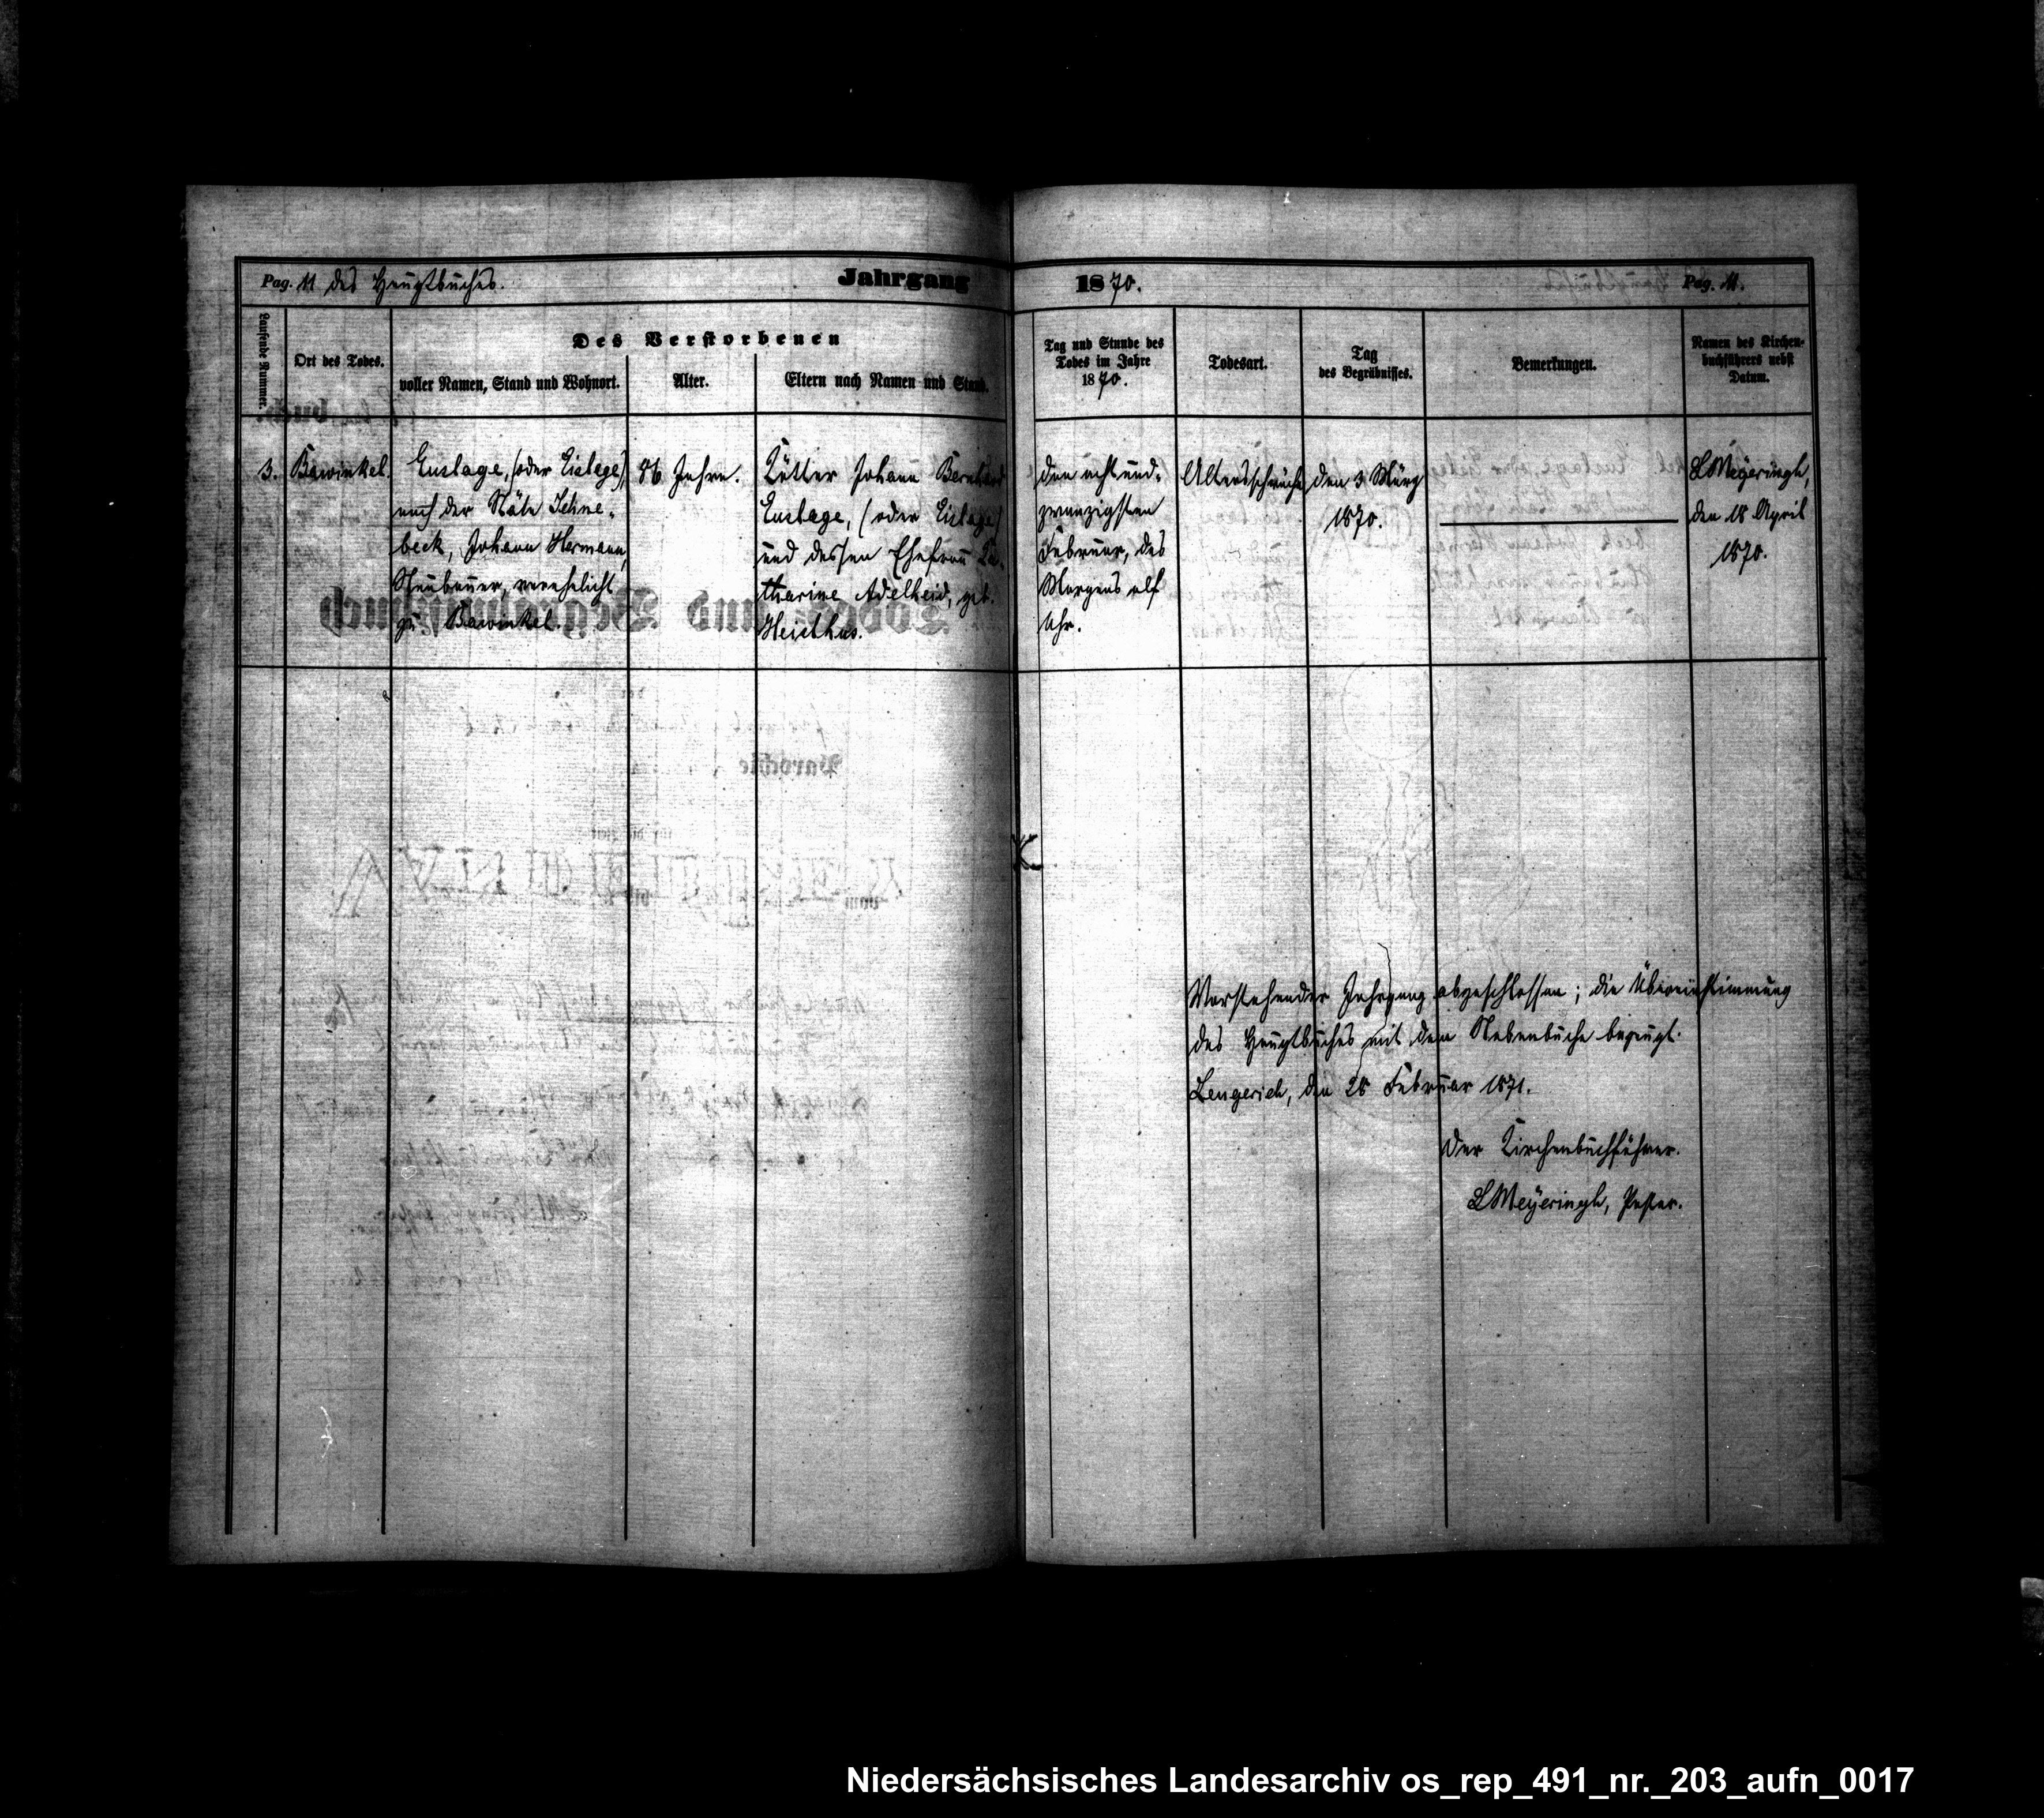 Pag. 11 des Hauptbuches.
Jahrgang
1870.
Pag. 11.
Laufende Nummer.
Ort des Todes.
Des Verstorbenen
voller Namen, Stand und Wohnort.
Alter.
Eltern nach Namen und Stand.
Tag und Stunde des
Todes im Jahre
1870.
Todesart.
Tag
des Begräbnisses.
Bemerkungen.
Namen des Kirchen-
buchführers nebst
Datum.
3.
Bawinkel
Euslage, (oder Eislage),
nach der Stäte
beck, Johann Hermann,
Neubauer, verehelicht
zu Bawinkel.
86 Jahre.
Kötter Johann Bernhard
Euslage, (oder Eislage)
und dessen Ehefrau Ca-
tharine Adelheid, geb.
den achtund-
zwanzigsten
Februar, des
Morgens elf
Uhr.
Altersschwäche
den 3 März
1870.
LMeyeringh,
den 18 April
1870.
Vorstehender Jahrgang abgeschlossen; die Übereinstimmung
des Hauptbuches mit dem Nebenbuche bezeugt.
Lengerich, den 28 Februar 1871.
Der Kirchenbuchführer.
LMeyeringh, Pastor.
Niedersächsisches Landesarchiv os_rep_491_nr._203_aufn_0017